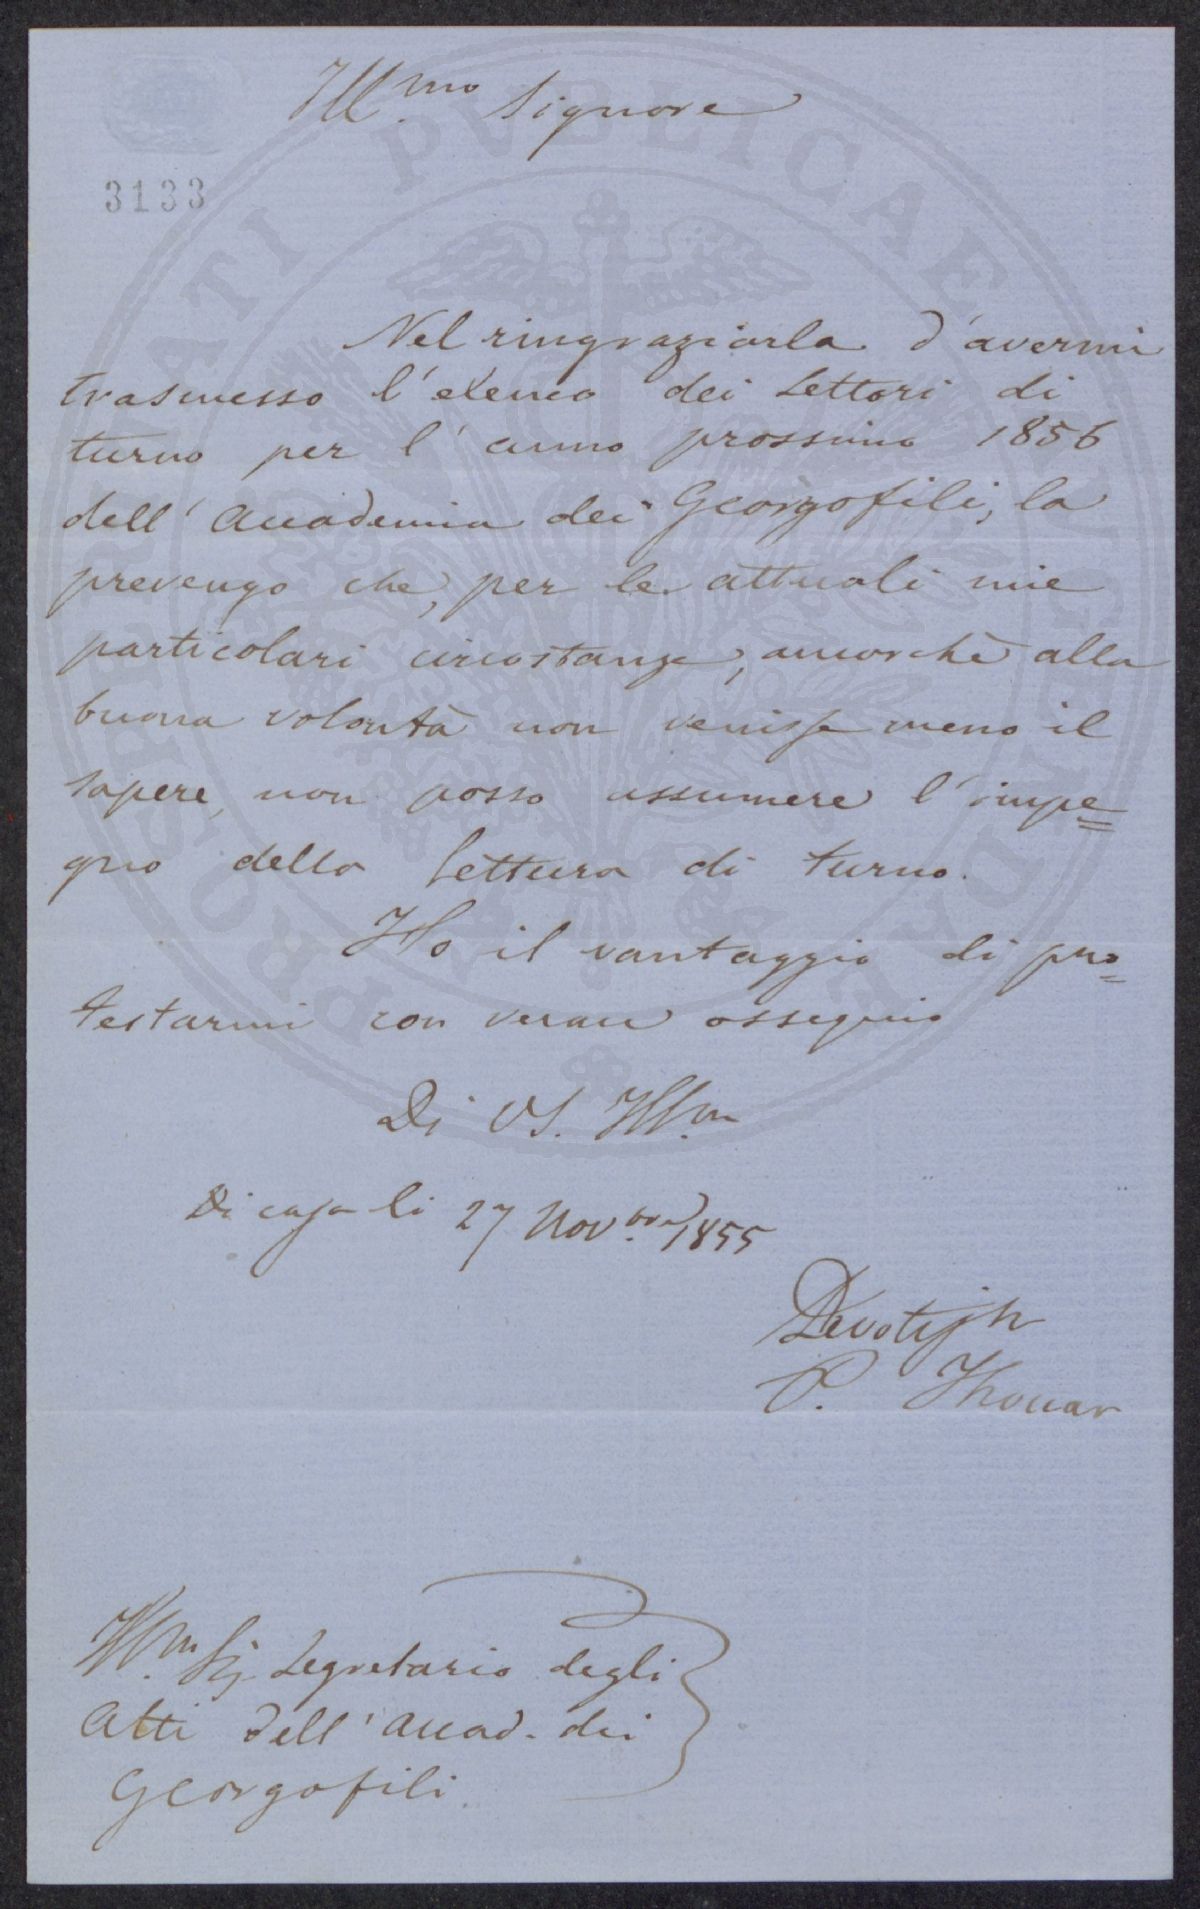 Ill.mo Signore
3133
Nel ringraziarla d'avermi
trasmesso l'elenco dei Lettori di
turno per l'anno prossimo 1856
dell'Accademia dei Georgofili, la
prevengo che, per le attuali mie
particolari circostanze, ancorchè alla
buona volontà non venisse meno il
sapere, non posso assumere l'impe=
gno della Lettura di turno.
Ho il vantaggio di pro=
testarmi con verace ossequio
Di VS. Ill.ma
Di casa li 27 Nov.bre 1855
Devotiss.
P. Thouar
Ill.mo Sig. Segretario degli
Atti dell'Accad. dei
Georgofili.
PROSPERITATI PVBLICAE AVGENDAE